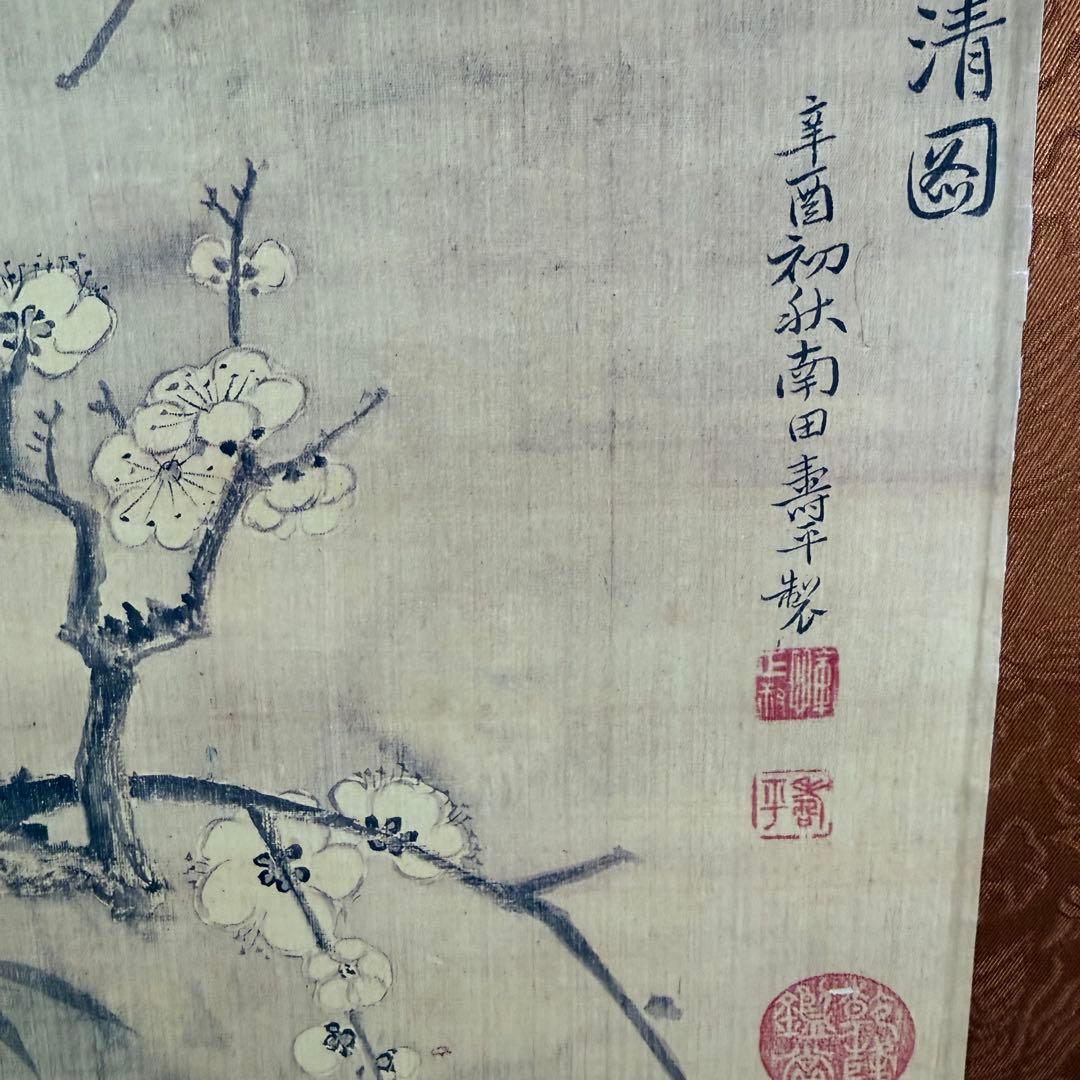 清圖
辛酉初秋南田壽平製
惲正叔
壽平